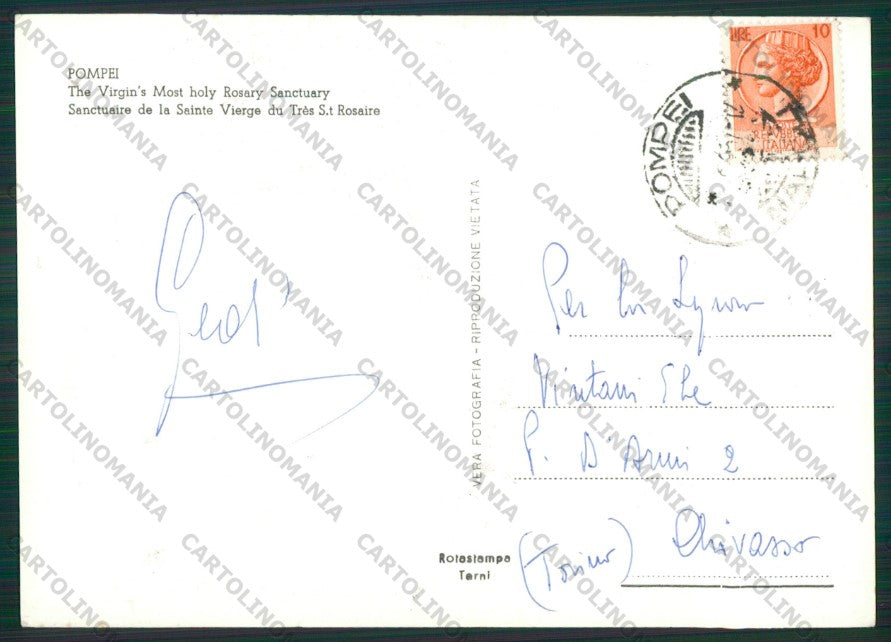 POMPEI
The Virgin's Most holy Rosary Sanctuary
Sanctuaire de la Sainte Vierge du Très S.t Rosaire
LIRE 10
REPUBBLICA ITALIANA
POMPEI
VERA FOTOGRAFIA - RIPRODUZIONE VIETATA
Per
P. D'Armi 2
Chivasso
(Torino)
Rotastampa
Terni
CARTOLINOMANIA